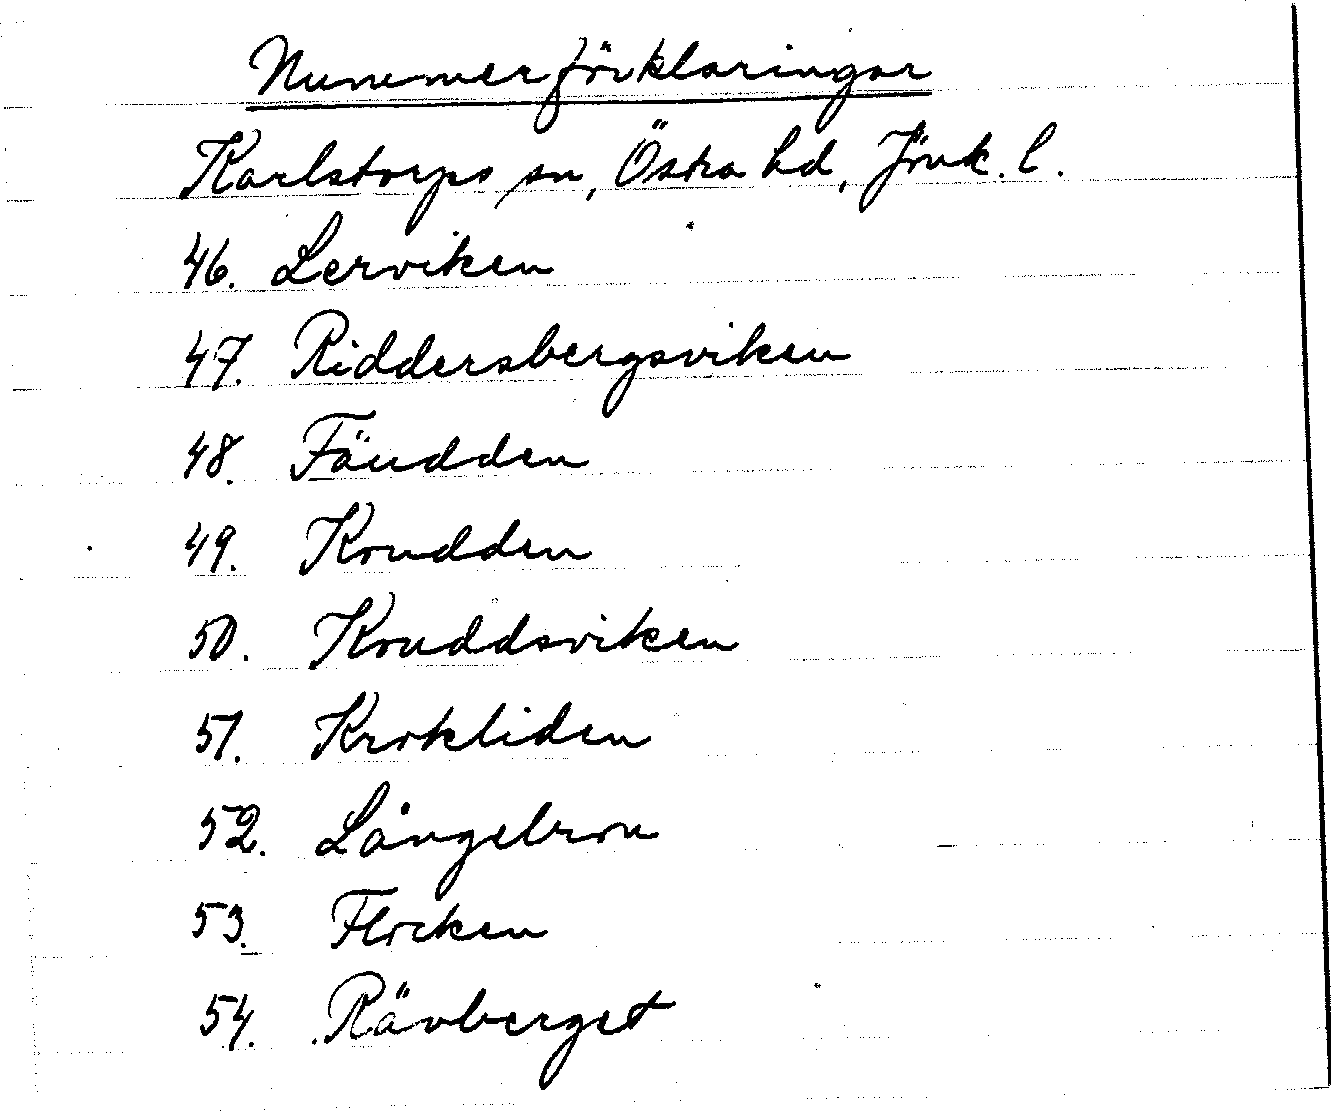 Nummerförklaringar
Karlstorps sn, Östra hd, Jönk. l.
46. Lerviken
47. Riddersbergsviken
48. Fäudden
49. Koudden
50. Kouddsviken
51. Krokliden
52. Långebron
53. Flocken
54. Rävberget